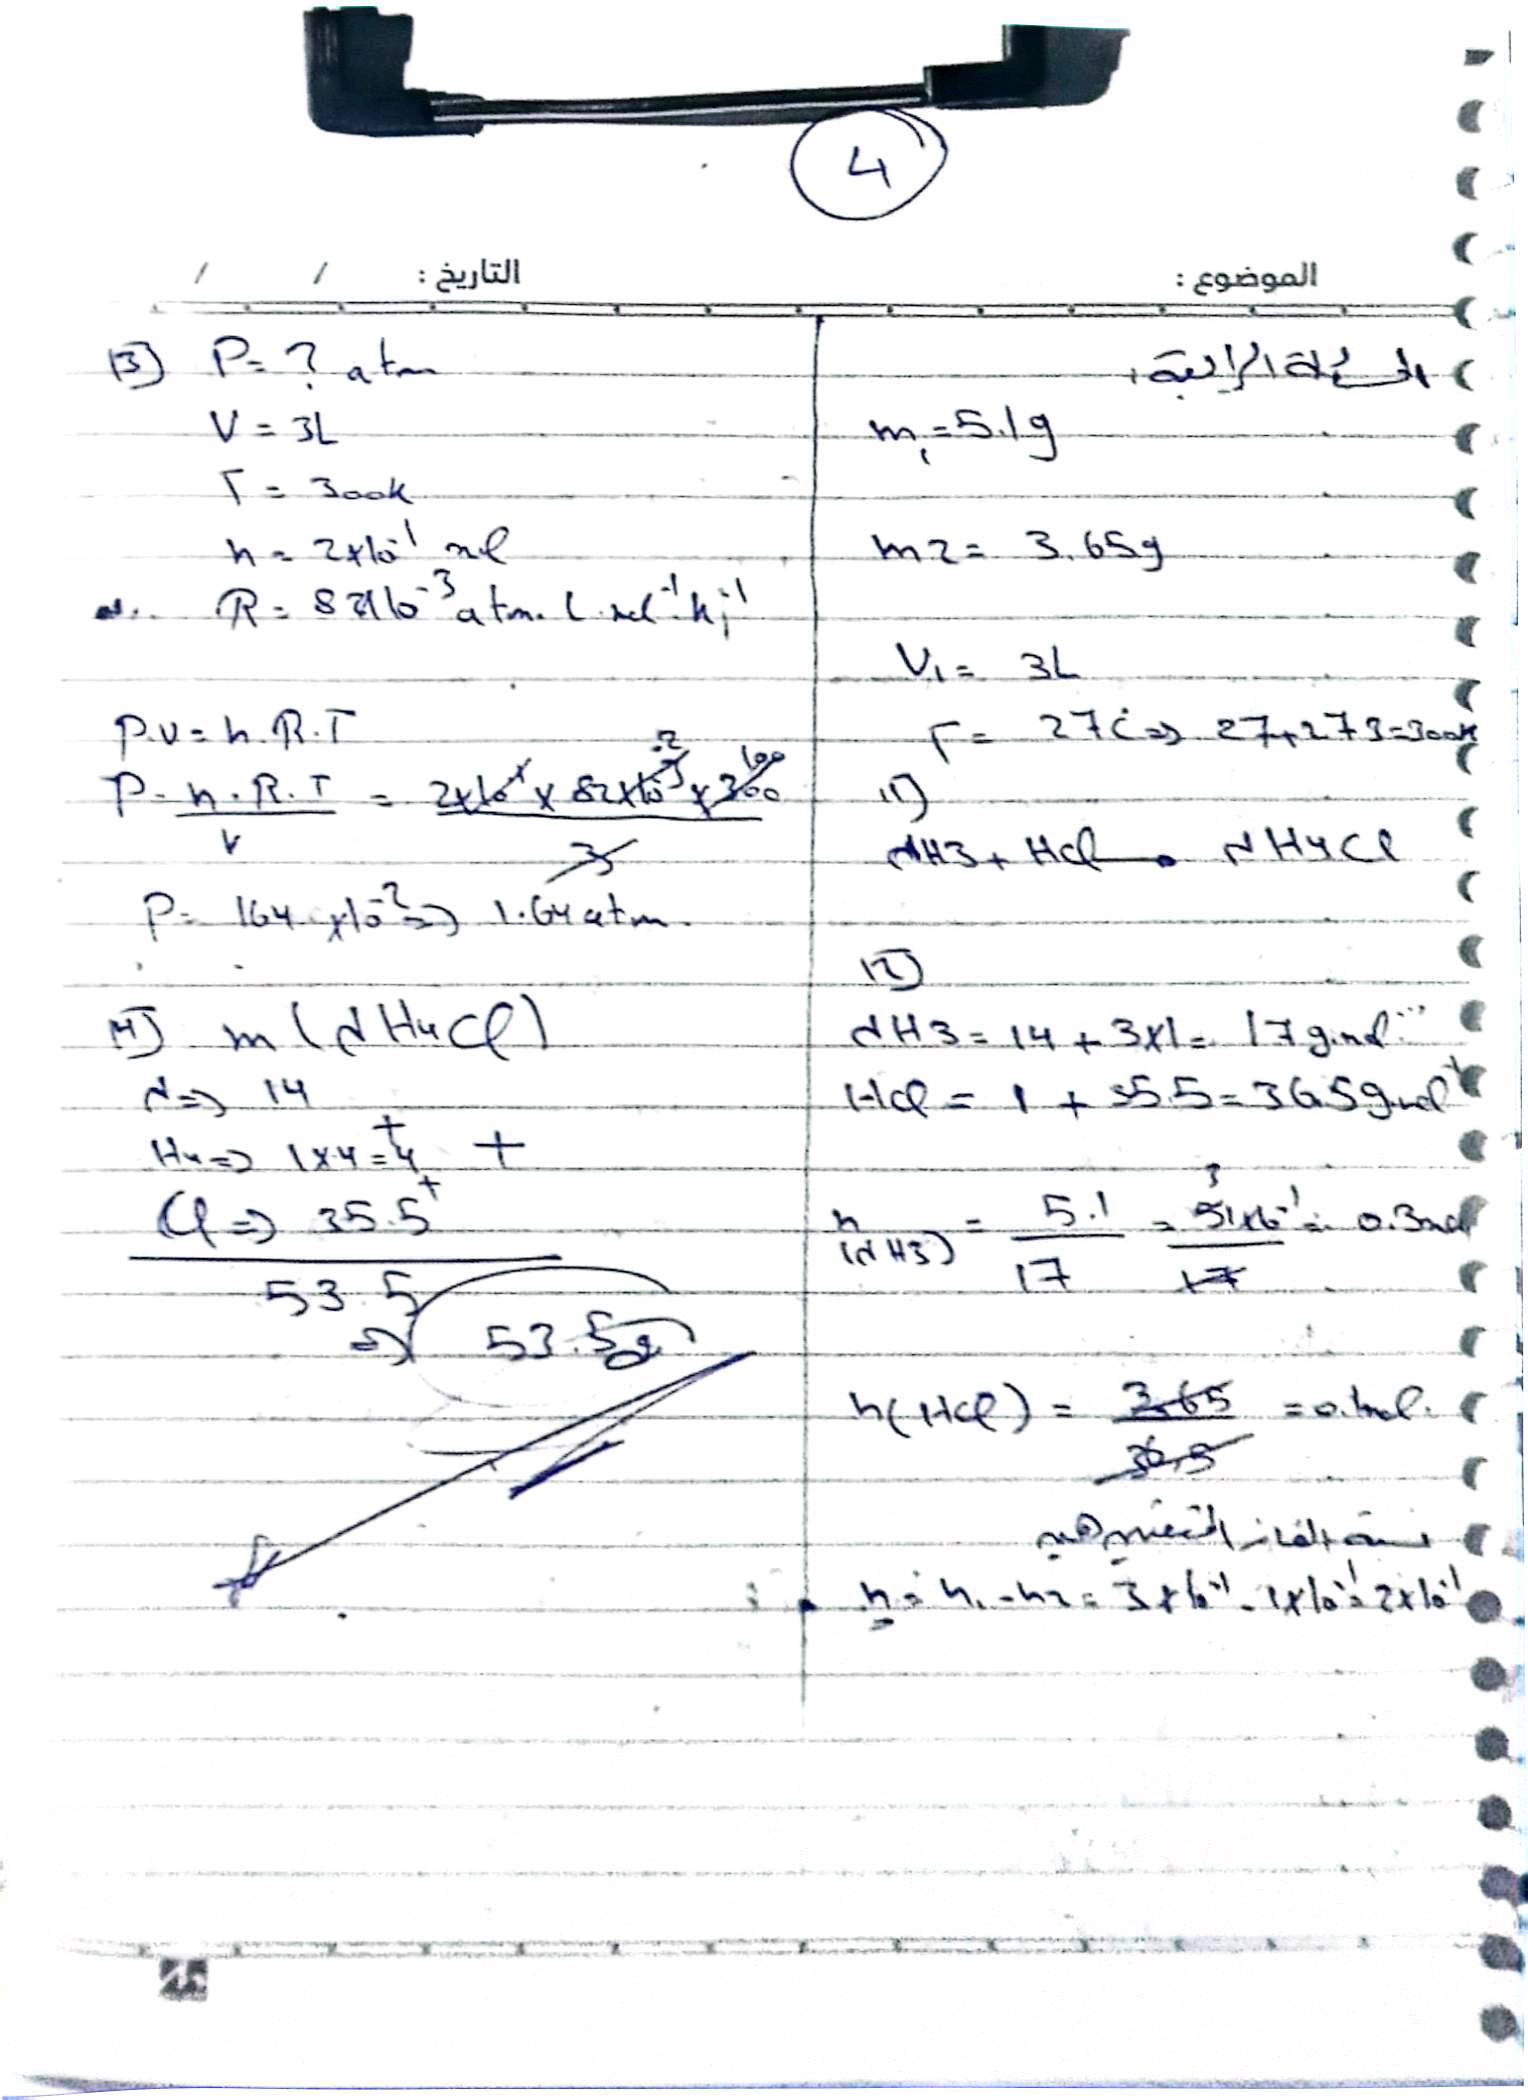 4
الموضوع :
التاريخ : / /
المسألة الرابعة:
m₁ = 5.1g
m2 = 3.65g
V₁ = 3L
T = 27C => 27+273=300K
1)
NH3 + HCl → NH4Cl
2)
NH3 = 14 + 3x1 = 17 g.mol⁻¹
HCl = 1 + 35.5 = 36.5 g.mol⁻¹
n(NH3) = 5.1/17 = 51x10⁻¹/17 = 0.3mol
n(HCl) = 3.65/36.5 = 0.1mol.
n = n₁ - n2 = 3x10⁻¹ - 1x10⁻¹ = 2x10⁻¹
3) P = ? atm
V = 3L
T = 300K
n = 2x10⁻¹ mol
R = 82x10⁻³ atm.L.mol⁻¹.K⁻¹
P.V = n.R.T
P = n.R.T/V = 2x10⁻¹ x 82x10⁻³ x 300/3
P = 164 x10⁻² => 1.64 atm.
4) m(NH4Cl)
N => 14
H4 => 1x4 = 4 +
Cl => 35.5
53.5
=> 53.5g